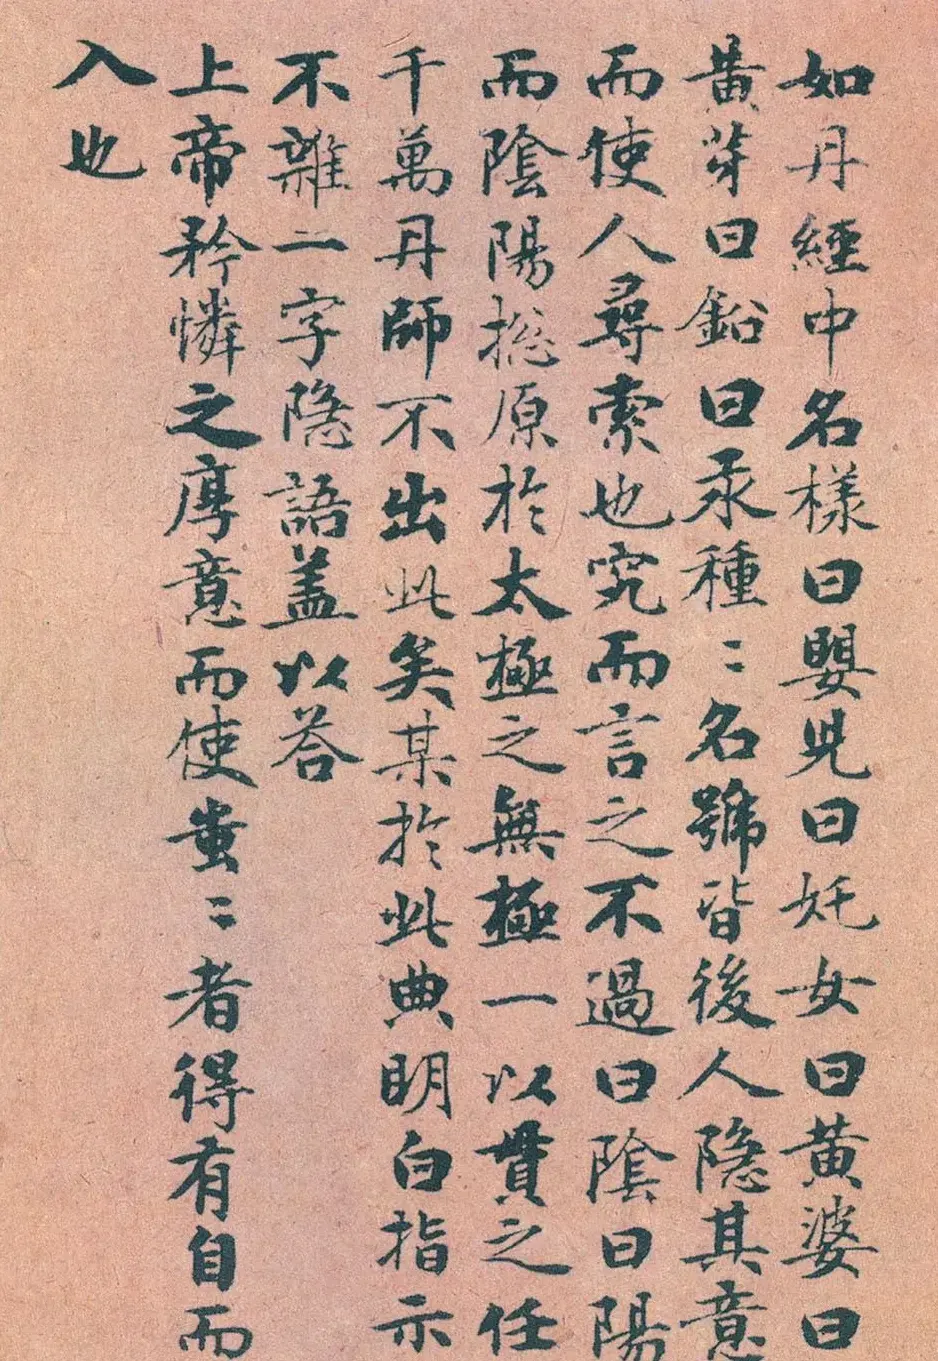 如丹經中名樣曰嬰兒曰奼女曰黃婆曰
黃芽曰鉛曰汞種〻名號皆後人隱其意
而使人尋索也究而言之不過曰陰曰陽
而陰陽捴原於太極之無極一以貫之任
千萬丹師不出此矣某於此典明白指示
不雜一字隱語盖以荅
上帝矜憐之厚意而使蚩〻者得有自而
入也